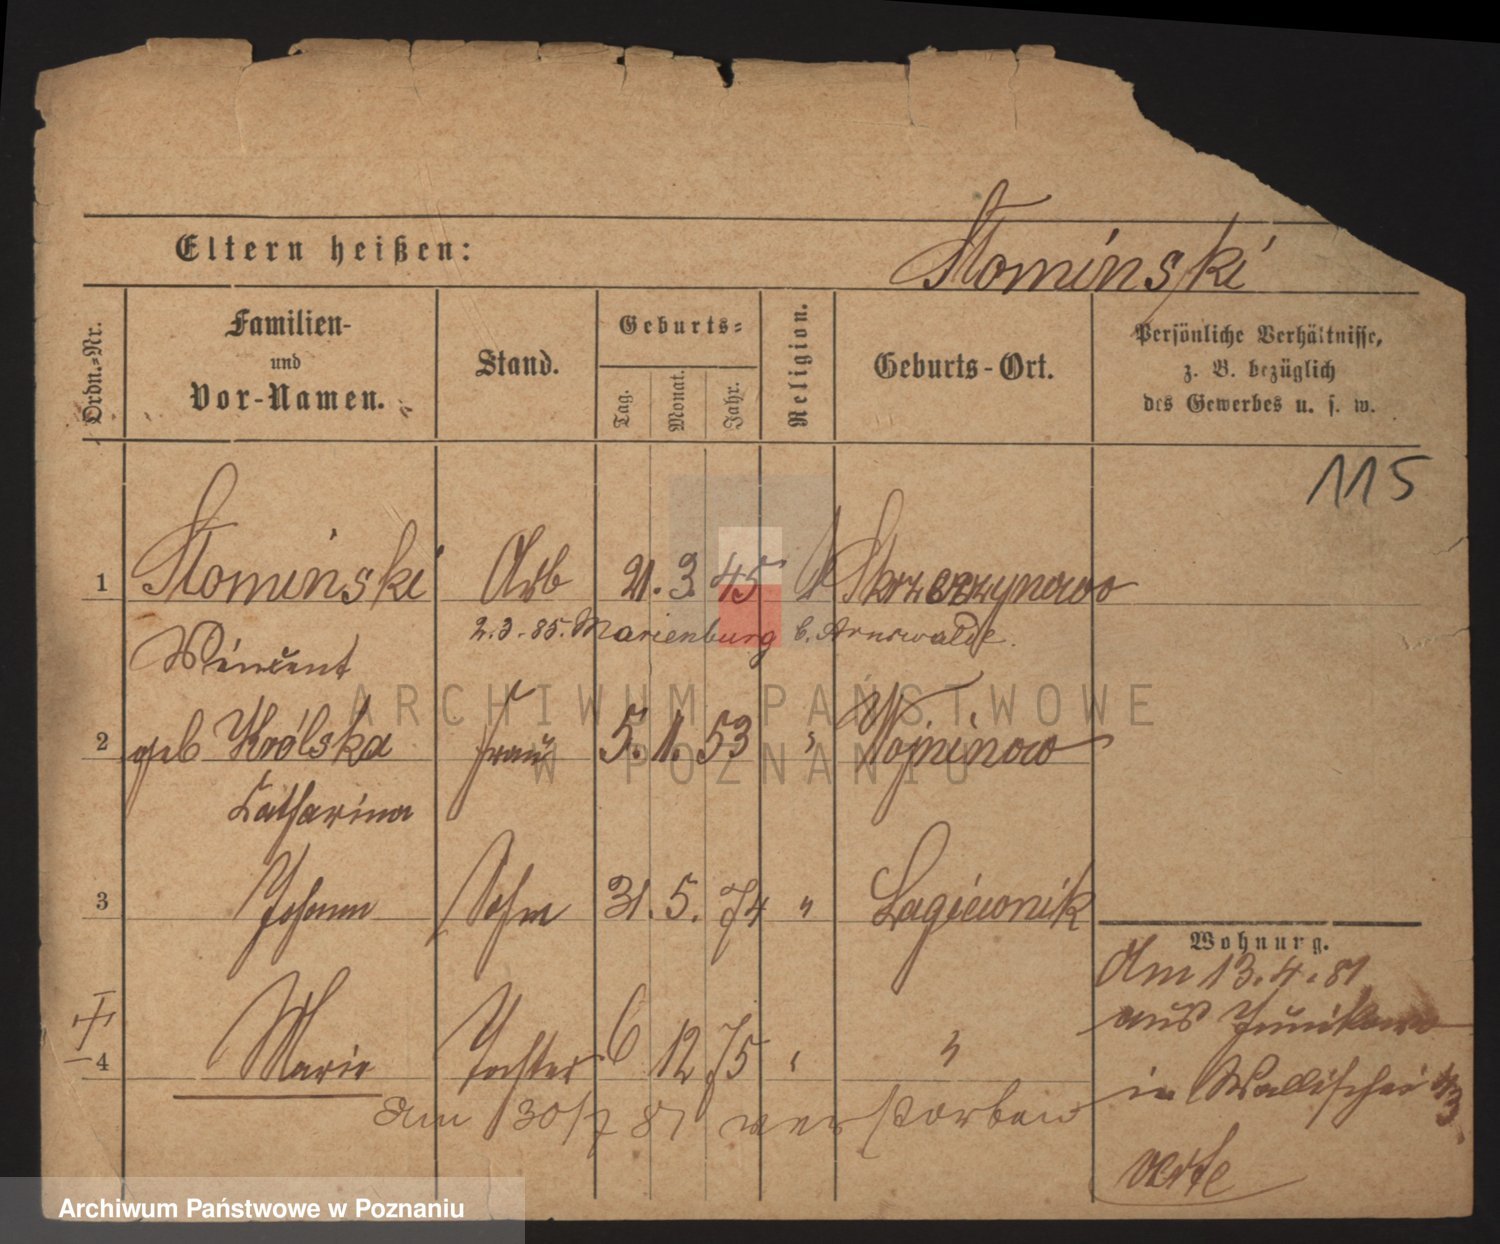 Słominski
Eltern heißen:
Ordn.-Nr.
Familien-
und
Vor-Namen.
Stand.
Geburts-
Tag.
Monat.
Jahr.
Religion.
Geburts-Ort.
Persönliche Verhältnisse,
z. B. bezüglich
des Gewerbes u. s. w.
115
1 Słominski Arb 21. 3. 45 Skrzerzynowo
2.3.85. Marienburg b. Arnswalde.
Wincent
ARCHIWUM PAŃSTWOWE
W POZNANIU
2 geb Królska Frau 5. 1. 53 " Wojminowo
Catharina
3 Johann Sohn 31. 5. 74 " Lagiewnik
Wohnung.
Am 13.4.81
aus Junikowo
in Wallischei 43
verte
4 Marie Tochter 6 12 75 " "
Am 30/7 81 verstorben
Archiwum Państwowe w Poznaniu